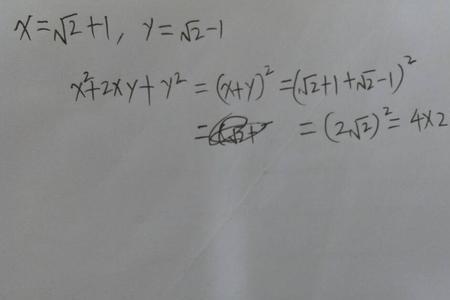 x=√2+1, y=√2-1
x²+2xy+y² = (x+y)² =(√2+1+√2-1)²
= = (2√2)² = 4×2